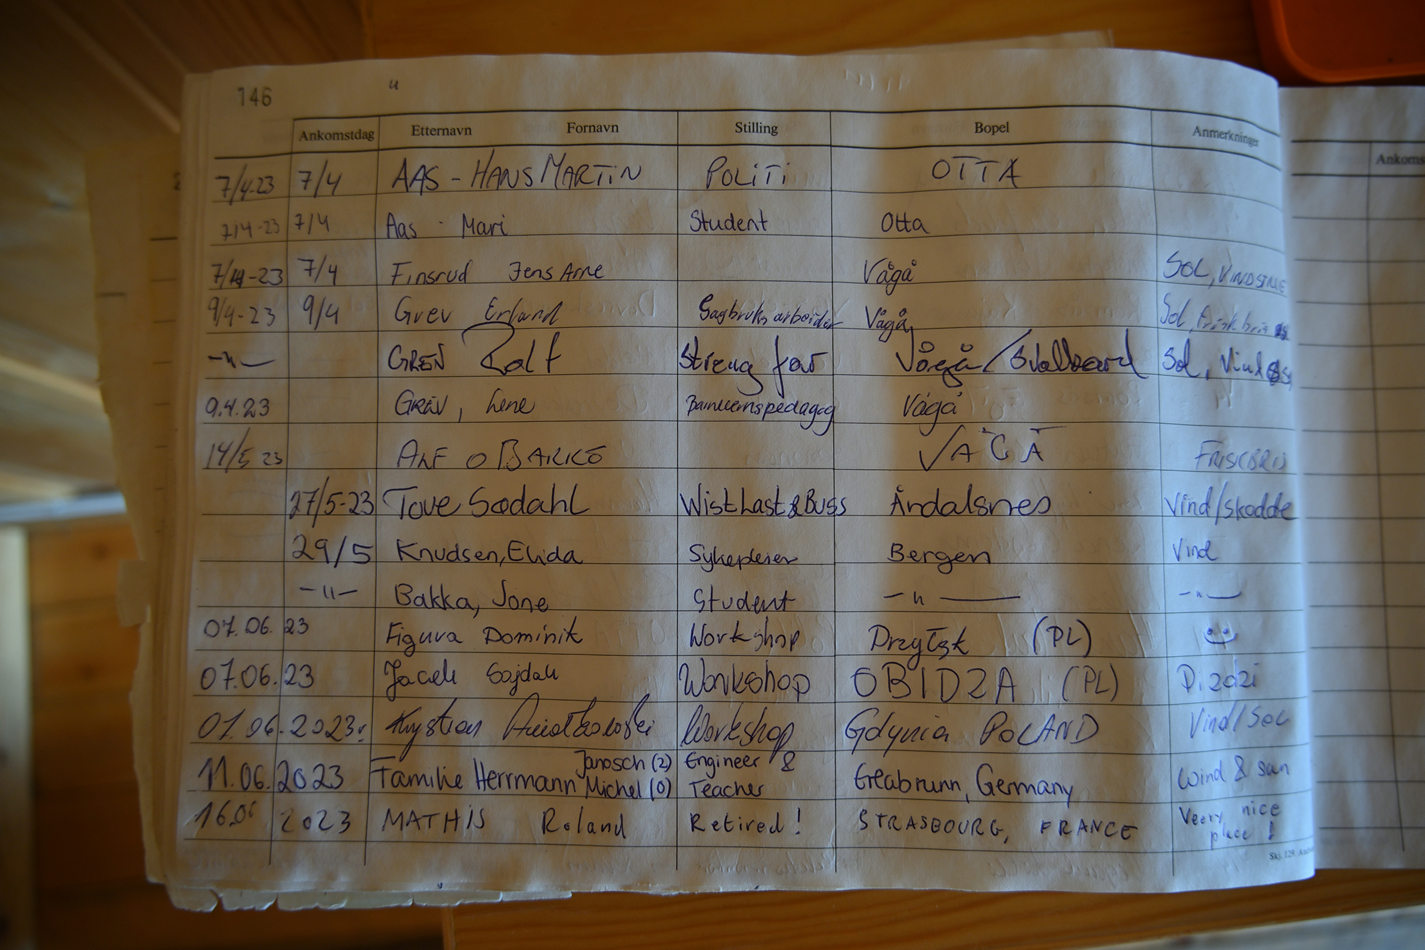 146
Ankomstdag Etternavn Fornavn Stilling Bopel Anmerkninger
7/4.23 7/4 AAS - HANS MARTIN POLITI OTTA
7/4-23 7/4 Aas - Mari Student Otta
7/4-23 7/4 Finsrud Jens Arne Vågå SOL, VINDSTILLE
9/4-23 9/4 Grev Erland Sagbruksarbeider Vågå Sol, frisk bris
-"- GREV Rolf Streng far Vågå/Svalbard Sol, Vind
9.4.23 GREV, Lene Barnevernspedagog Vågå
14/5 23 VÅGÅ FRISK BRIS
27/5-23 Tove Sødahl Wist Last & Buss Åndalsnes Vind/skodde
29/5 Knudsen, Elida Sykepleier Bergen Vind
-"- Bakka, Jone Student -"- -"-
07.06.23 Figura Dominik Workshop (PL)
07.06.23 Jacek Workshop OBIDZA (PL)
07.06.2023r. Krystian Workshop Gdynia POLAND Vind/Sol
11.06.2023 Familie Herrmann Janosch (2) Michel (0) Engineer & Teacher Germany Wind & sun
16.06 2023 MATHIS Roland Retired! STRASBOURG, FRANCE Veery nice place!
Ankoms